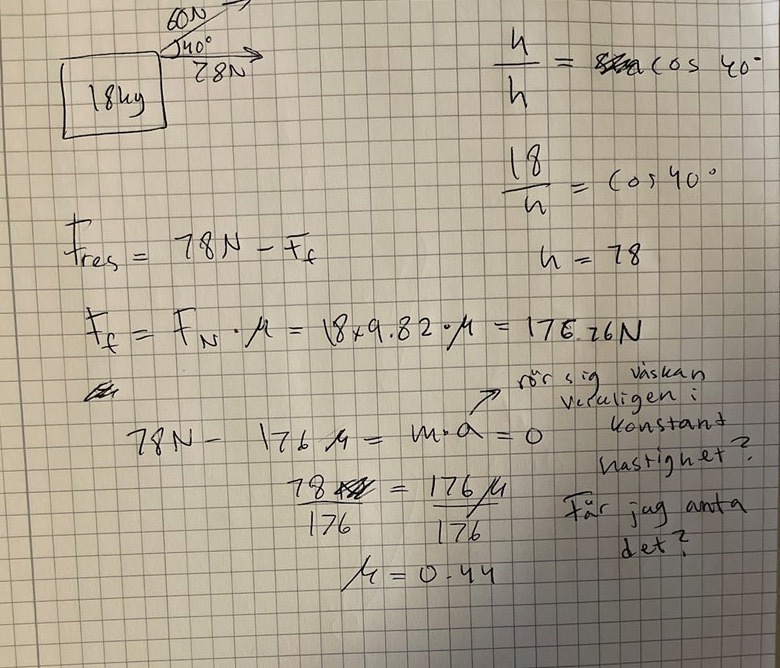 60N
40°
78N
18kg
h/h = cos 40°
18/h = cos 40°
h = 78
Fres = 78N - Ff
Ff = FN · μ = 18x9.82·μ = 176.76N
78N - 176 μ = m·a = 0
rör sig väskan
verkligen i
konstant
hastighet?
Får jag anta
det?
78/176 = 176μ/176
μ = 0.44